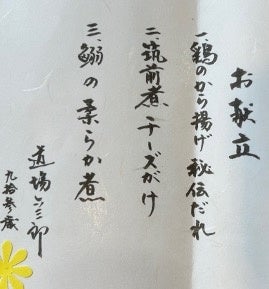 お献立
一、鶏のから揚げ 秘伝だれ
二、筑前煮 チーズがけ
三、鰯の柔らか煮
道場六三郎
九拾参歳